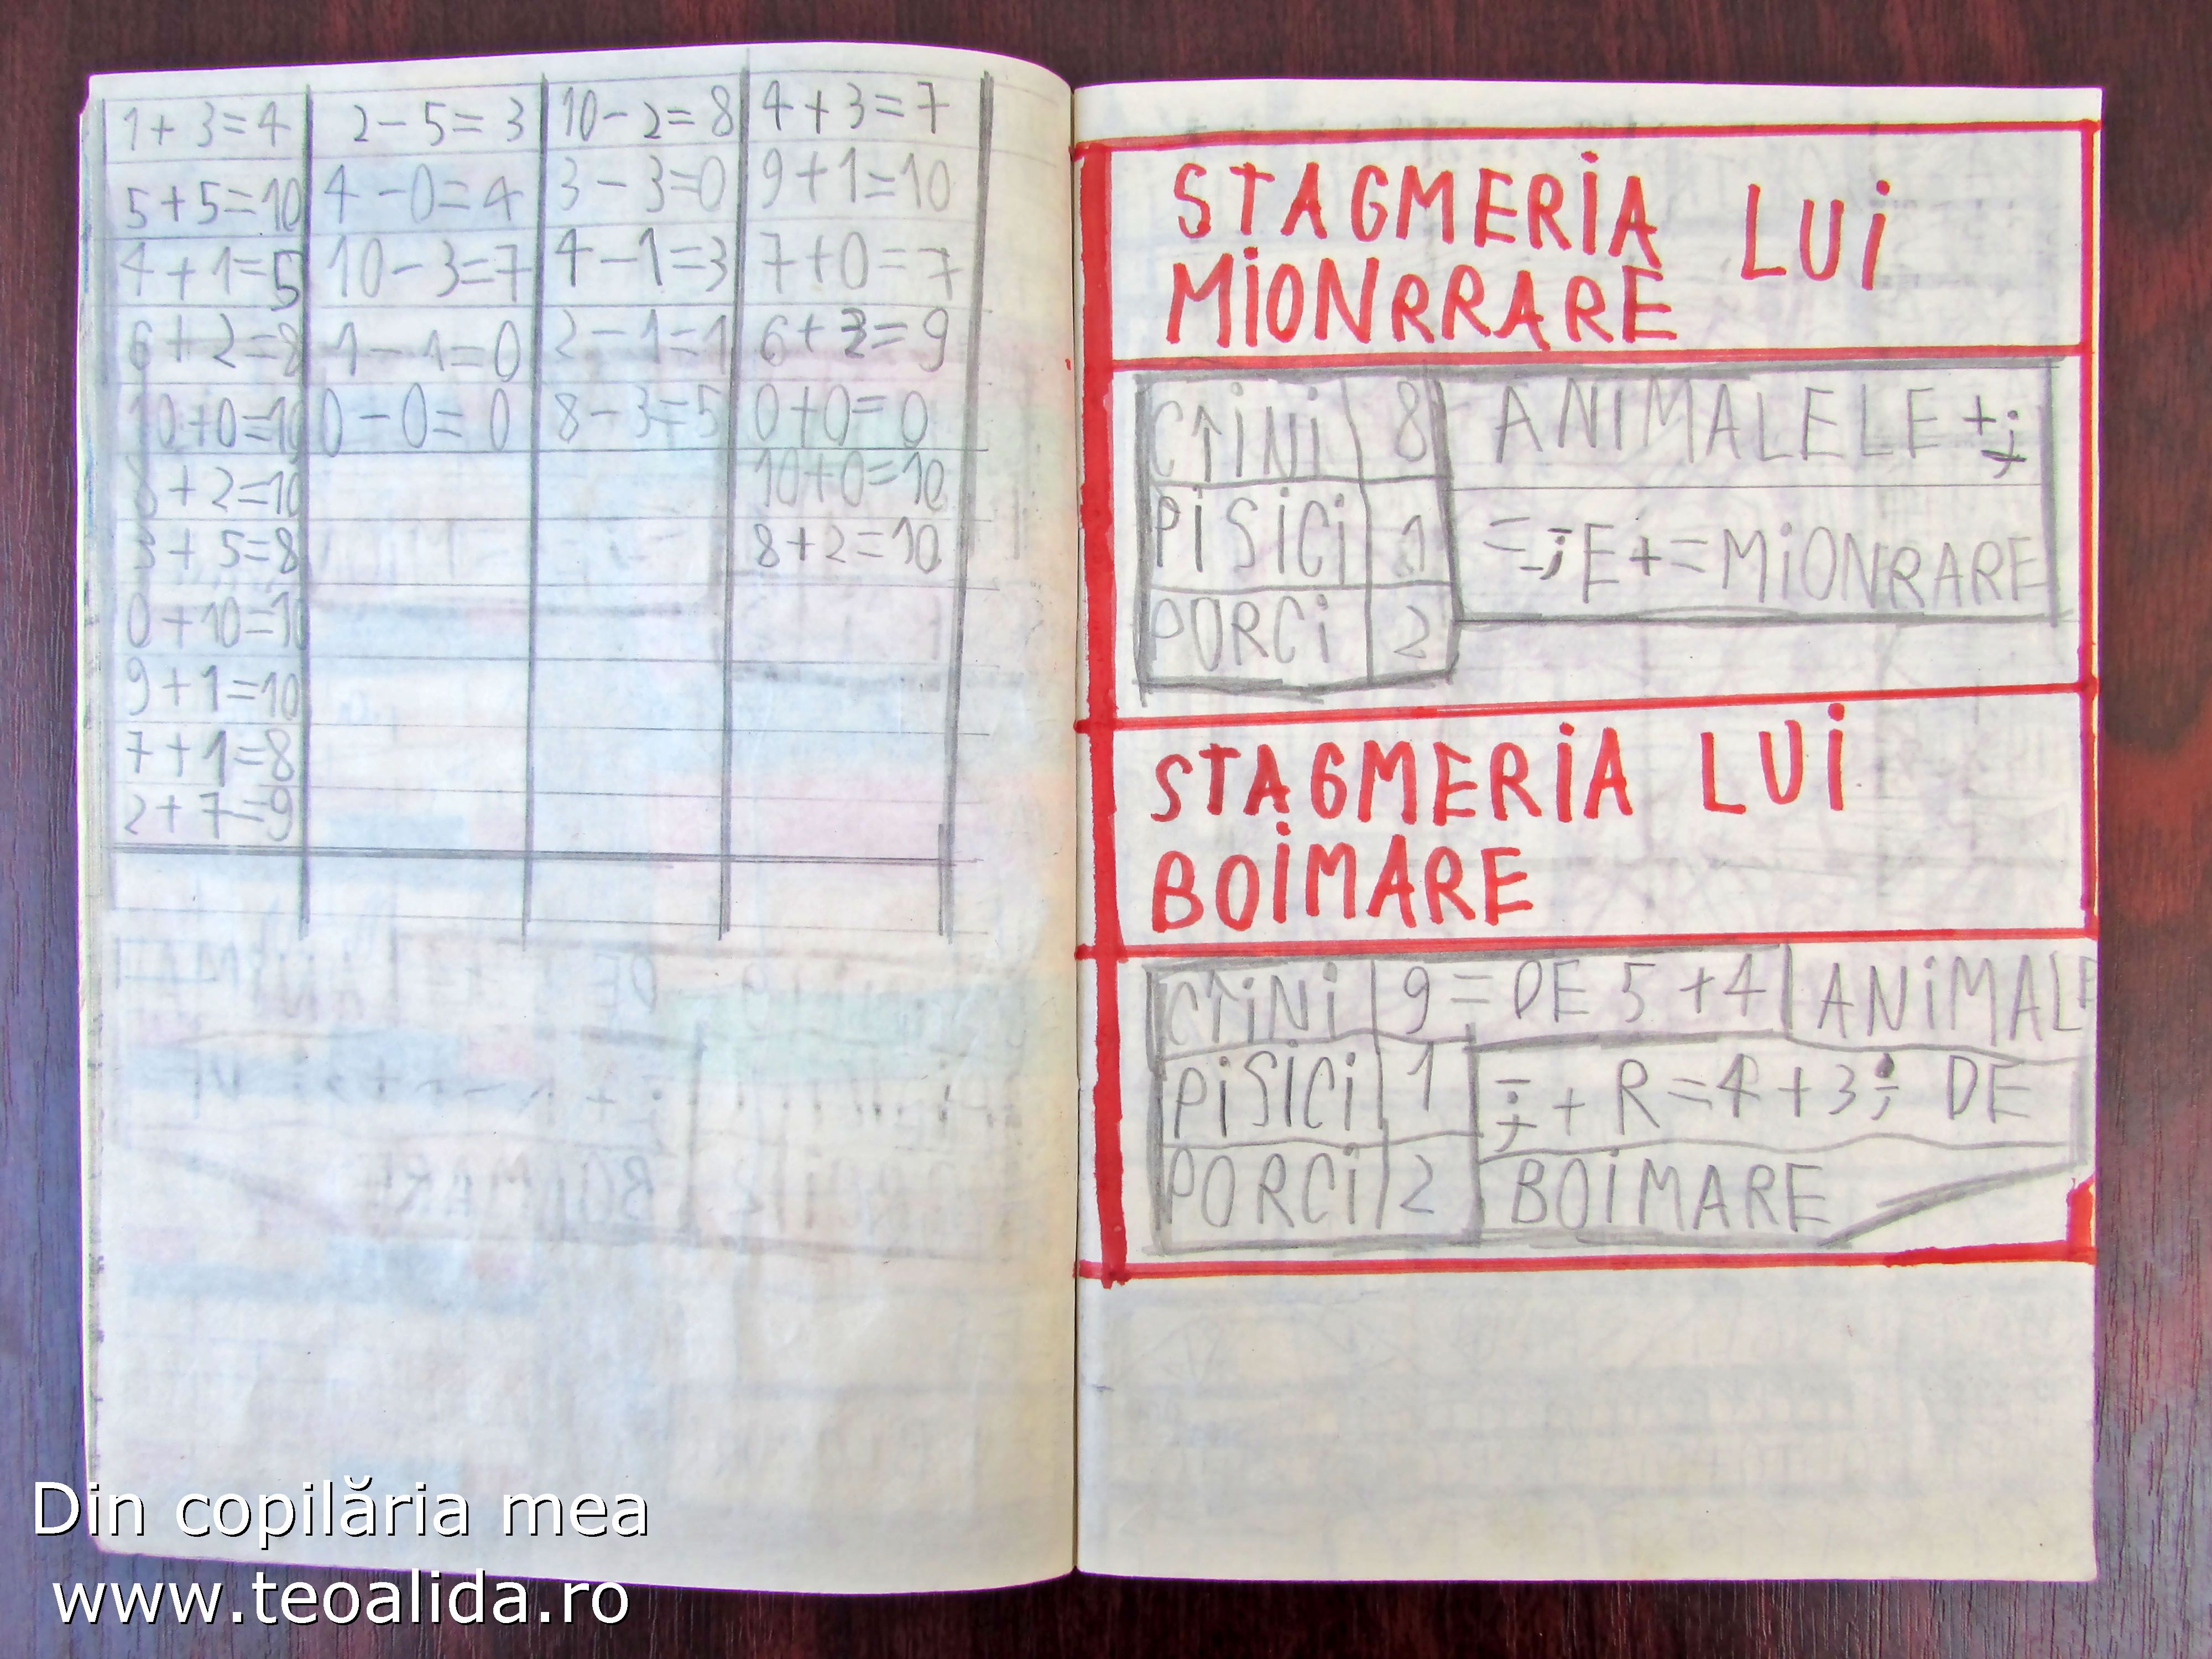 1+3=4
5+5=10
4+1=5
6+2=8
10+0=10
8+2=10
3+5=8
0+10=10
9+1=10
7+1=8
2+7=9
2-5=3
4-0=4
10-3=7
1-1=0
0-0=0
10-2=8
3-3=0
4-1=3
2-1=1
8-3=5
4+3=7
9+1=10
7+0=7
6+3=9
0+0=0
10+0=10
8+2=10
STAGMERiA LUi
MiONRRARE
C↑iNi 8 ANIMALELE +
PiSiCi 1 = E+=MiONRARE
PORCi 2
STAGMERiA LUi
BOiMARE
C↑iNi 9=DE 5+4 ANiMALE
PiSiCi 1 + R=4+3 DE
PORCi 2 BOiMARE
Din copilăria mea
www.teoalida.ro